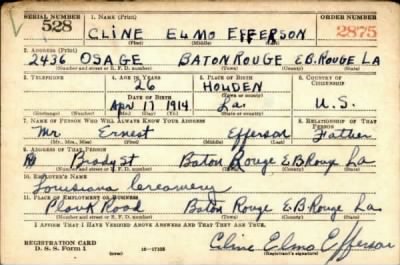 SERIAL NUMBER 1. NAME (Print) ORDER NUMBER
528 CLINE ELMO EFFERSON 2875
(First) (Middle) (Last)
2. ADDRESS (Print)
2436 OSAGE BATON ROUGE E.B. ROUGE LA
(Number and street or R. F. D. number) (Town) (County) (State)
3. TELEPHONE 4. AGE IN YEARS 5. PLACE OF BIRTH 6. COUNTRY OF CITIZENSHIP
26 HOLDEN
DATE OF BIRTH (Town or county)
Apr 17 1914 La. U.S.
(Exchange) (No.) (Mo.) (Day) (Yr.) (State or country)
7. NAME OF PERSON WHO WILL ALWAYS KNOW YOUR ADDRESS 8. RELATIONSHIP OF THAT PERSON
Mr. Ernest Efferson Father
(Mr., Mrs., Miss) (First) (Middle) (Last)
9. ADDRESS OF THAT PERSON
Brady St Baton Rouge E.B. Rouge La
(Number and street or R. F. D. number) (Town) (County) (State)
10. EMPLOYER'S NAME
Louisiana Creamery
11. PLACE OF EMPLOYMENT OR BUSINESS
Plank Road Baton Rouge E.B. Rouge La
(Number and street or R. F. D. number) (Town) (County) (State)
I AFFIRM THAT I HAVE VERIFIED ABOVE ANSWERS AND THAT THEY ARE TRUE.
REGISTRATION CARD
D. S. S. Form 1 Cline Elmo Efferson
(Registrant's signature)